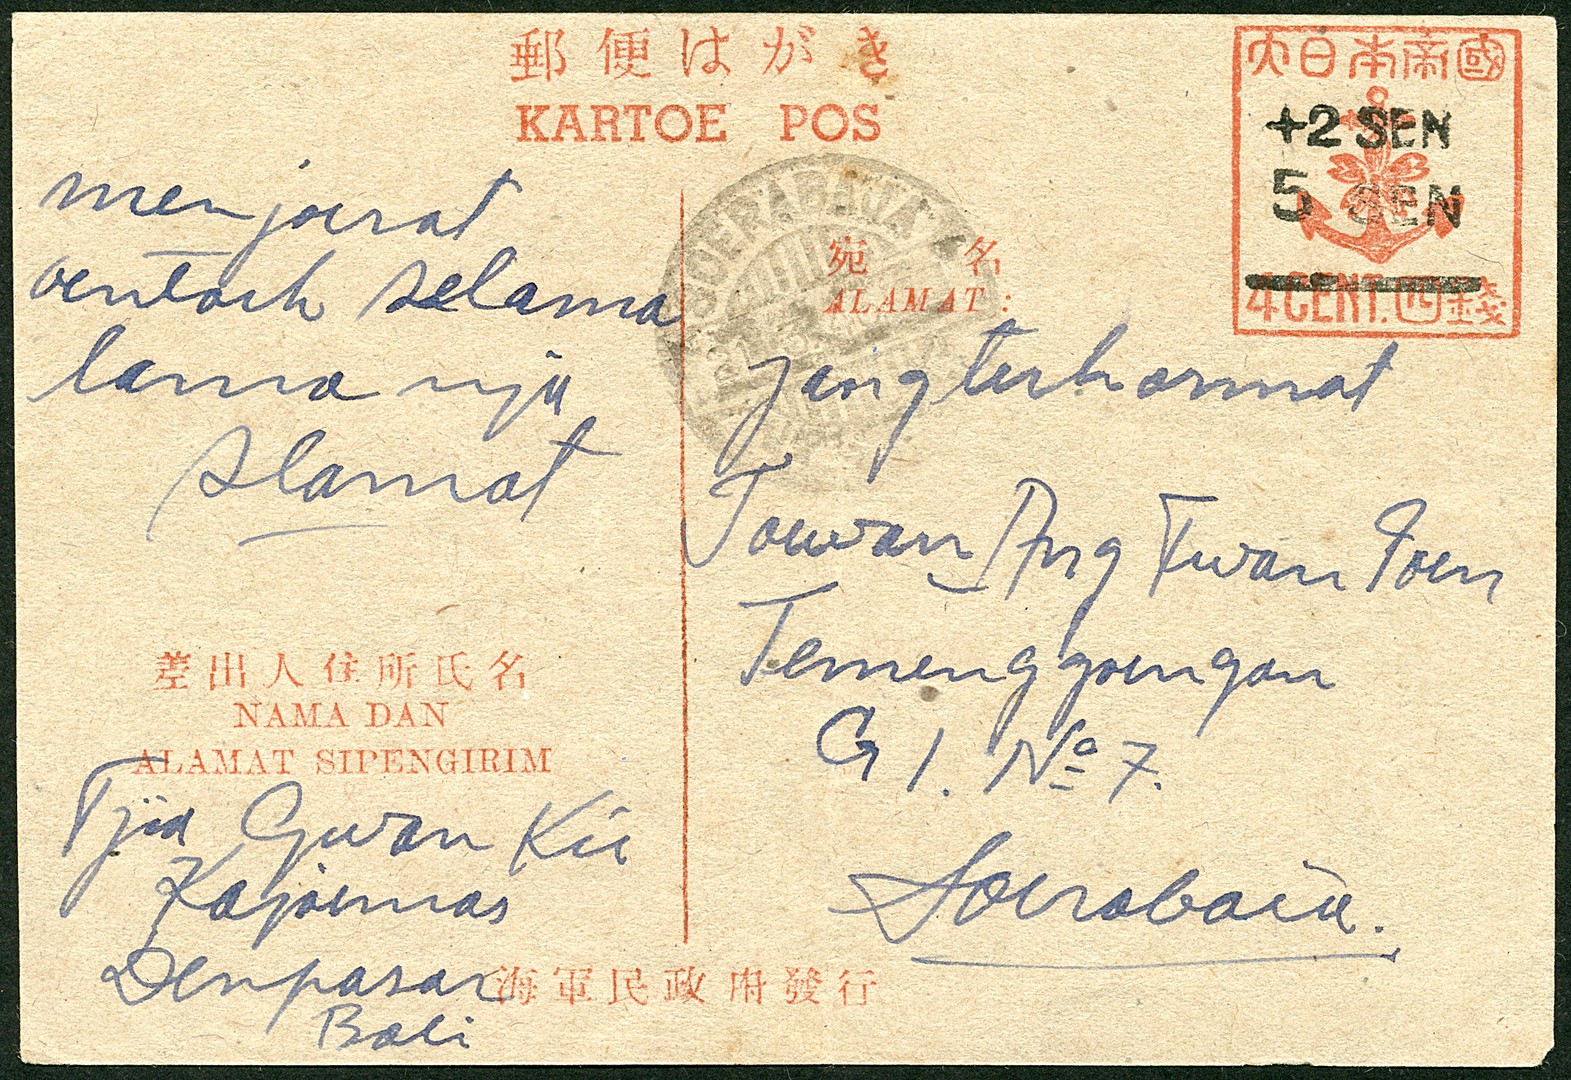 郵便はがき
KARTOE POS
大日本帝國
+2 SEN
5 SEN
4 CENT. 四錢
SOERABAJA
宛名
ALAMAT:
menjoerat
oentoek selama
lama nja
slamat
jang terhormat
Toewan Ang Twan Poen
Temenggoengan
G I. No 7.
Soerabaia.
差出人住所氏名
NAMA DAN
ALAMAT SIPENGIRIM
Tjia Gwan Kie
Kajoemas
Denpasar
Bali
海軍民政府發行